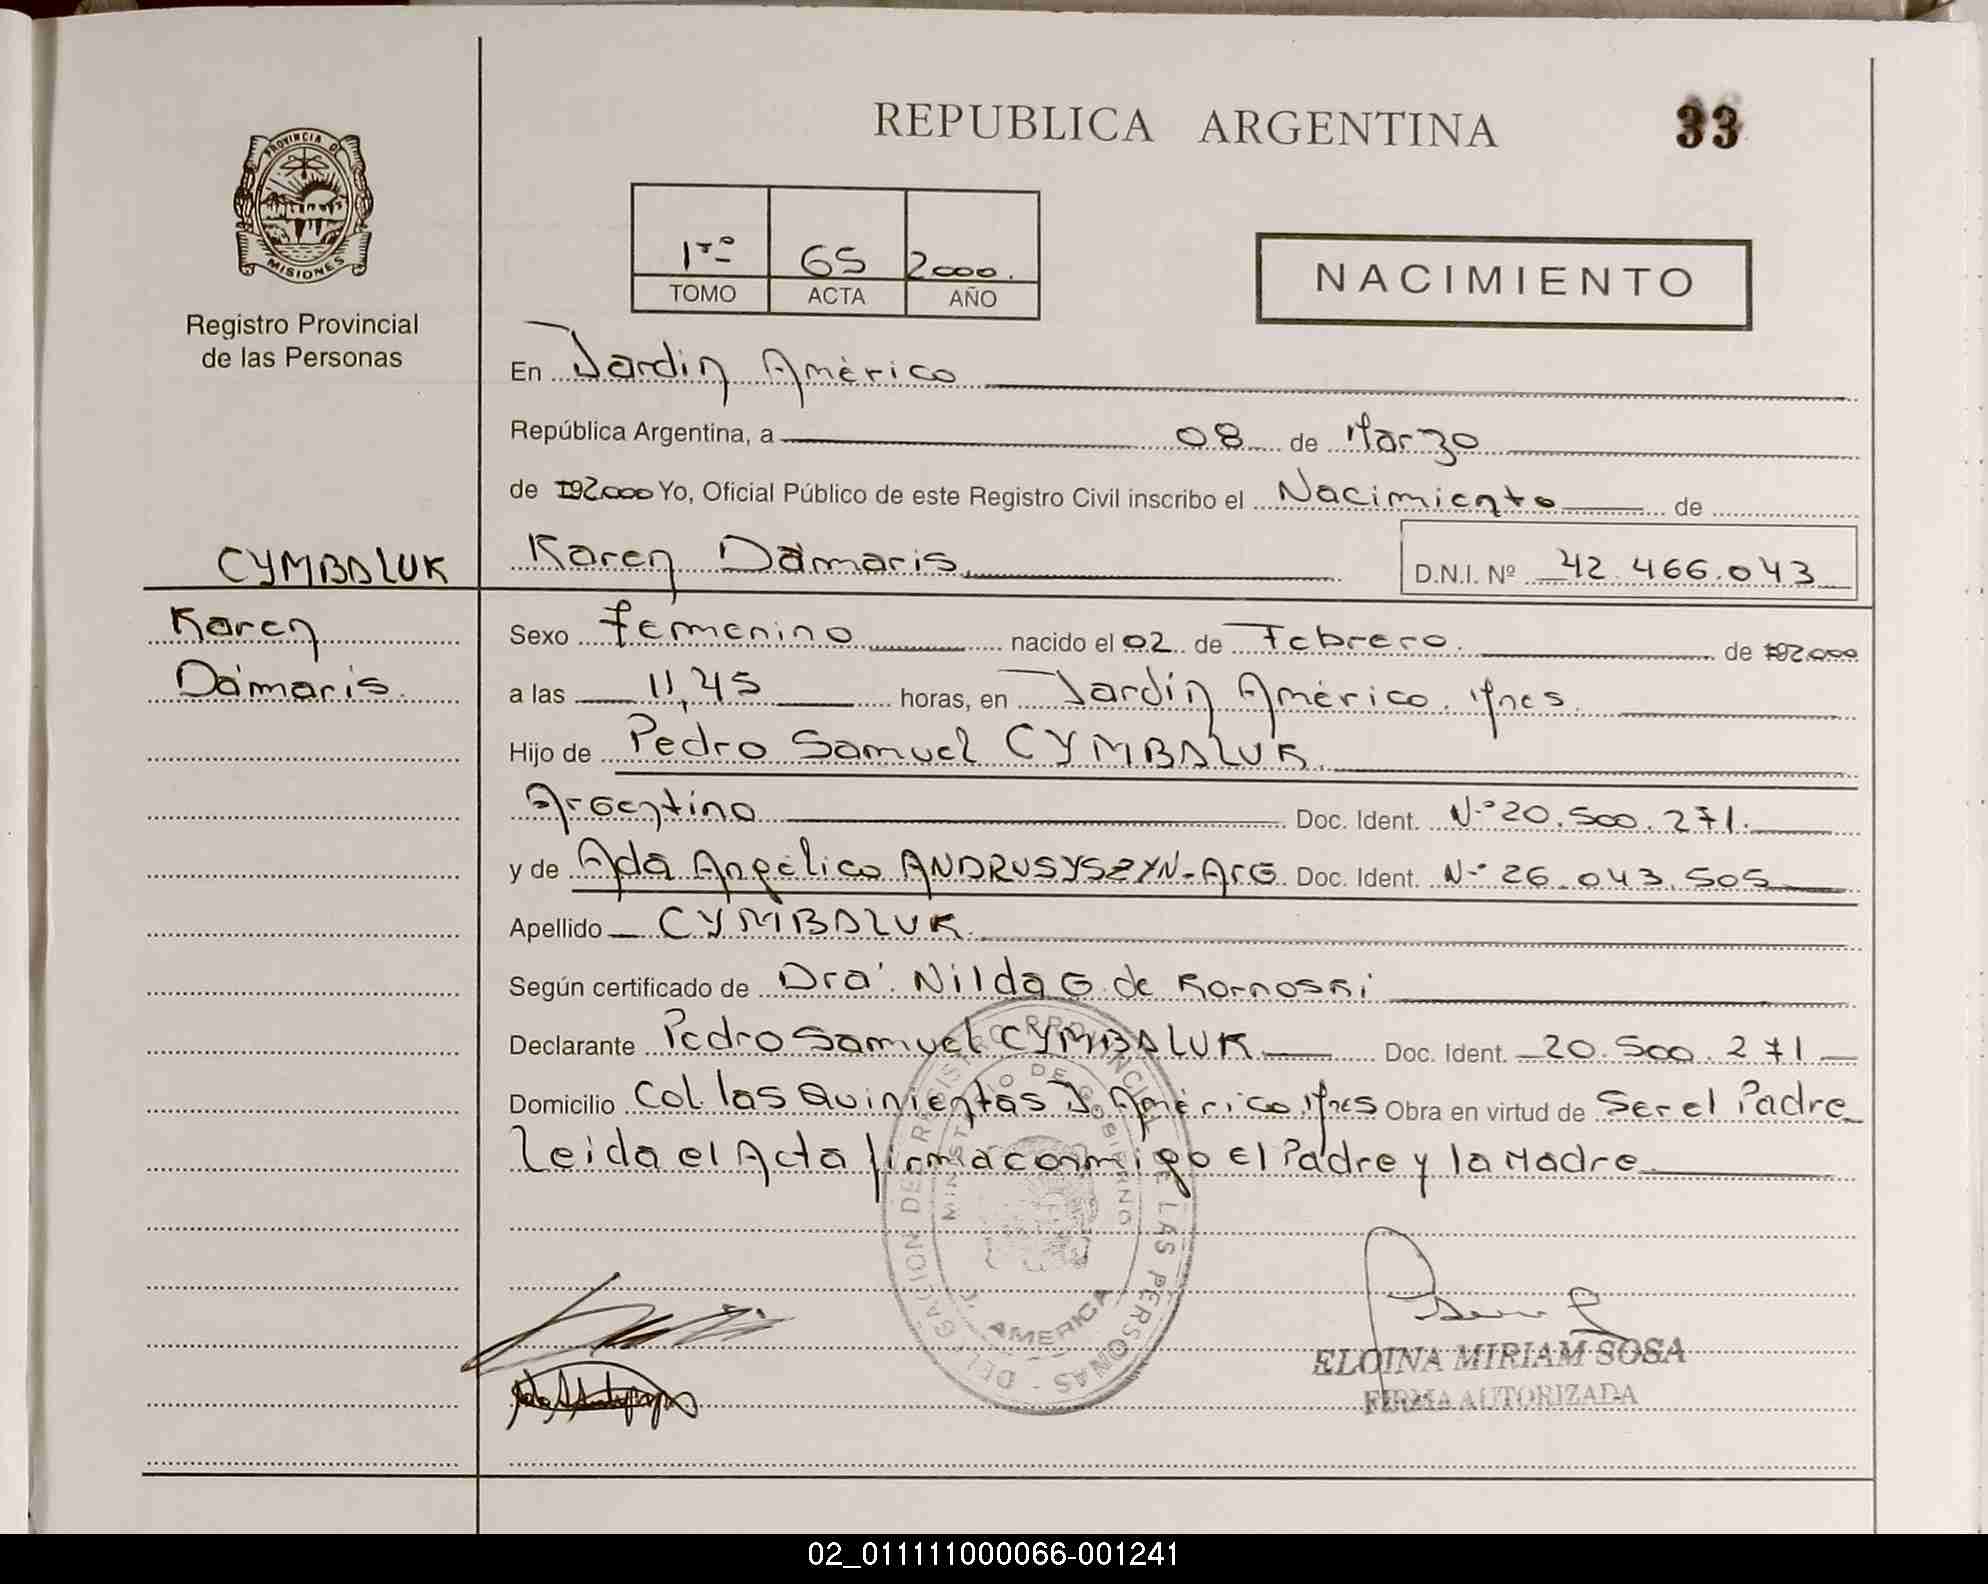 REPUBLICA ARGENTINA
33
PROVINCIA DE
MISIONES
Registro Provincial
de las Personas
1ro 65 2000.
TOMO ACTA AÑO
NACIMIENTO
En Jardín América
República Argentina, a 08 de Marzo
de 192.000 Yo, Oficial Público de este Registro Civil inscribo el Nacimiento de
CYMBALUK
Karen Dámaris.
D.N.I. Nº 42.466.043
Karen
Dámaris.
Sexo femenino nacido el 02 de Febrero. de 192.000
a las 11,45 horas, en Jardín América. Mnes.
Hijo de Pedro Samuel CYMBALUK.
Argentino Doc. Ident. Nº 20.500.271.
y de Ada Angélica ANDRUSYSZYN-Arg. Doc. Ident. Nº 26.043.505
Apellido CYMBALUK.
Según certificado de Dra. Nilda G. de
Declarante Pedro Samuel CYMBALUK Doc. Ident. 20.500.271
Domicilio Col. las Quinientas J. América, Mnes Obra en virtud de Ser el Padre
Leida el Acta firma conmigo El Padre y la Madre
DELEGACION DEL REGISTRO PROVINCIAL DE LAS PERSONAS
MINISTERIO DE GOBIERNO
J. AMERICA
ELOINA MIRIAM SOSA
FIRMA AUTORIZADA
02_011111000066-001241